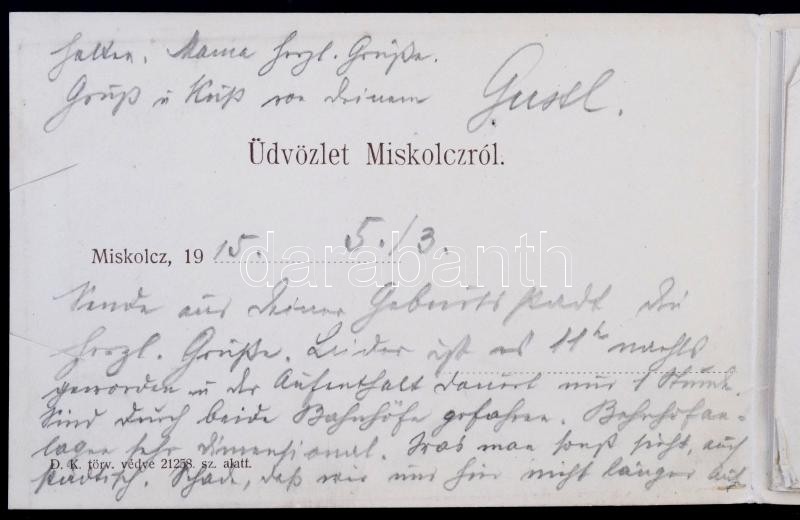 halten. Mama herzl. Grüße.
Gruß u Kuß von deinem Gustl.
Üdvözlet Miskolczról.
Miskolcz, 1915. 5./3.
darabanth
Sende aus deiner Geburtsstadt die
herzl. Grüße. Leider ist es 11h nachts
geworden u der Aufenthalt dauert nur 1 Stunde.
Sind durch beide Bahnhöfe gefahren. Bahnhofan-
lagen sehr dimensional. Was man sonst sieht, auch
D. K. törv. védve 21258. sz. alatt.
städtisch. Schade, daß wir uns hier nicht länger auf